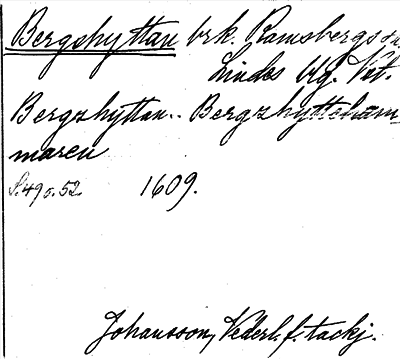 Bergshyttan brk. Ramsbergs sn.
Lindes bg. Vet.
Bergzhyttan.. Bergzhytteham-
maren
S. 49 o. 52 1609.
Johansson, Vederl. f. tackj.